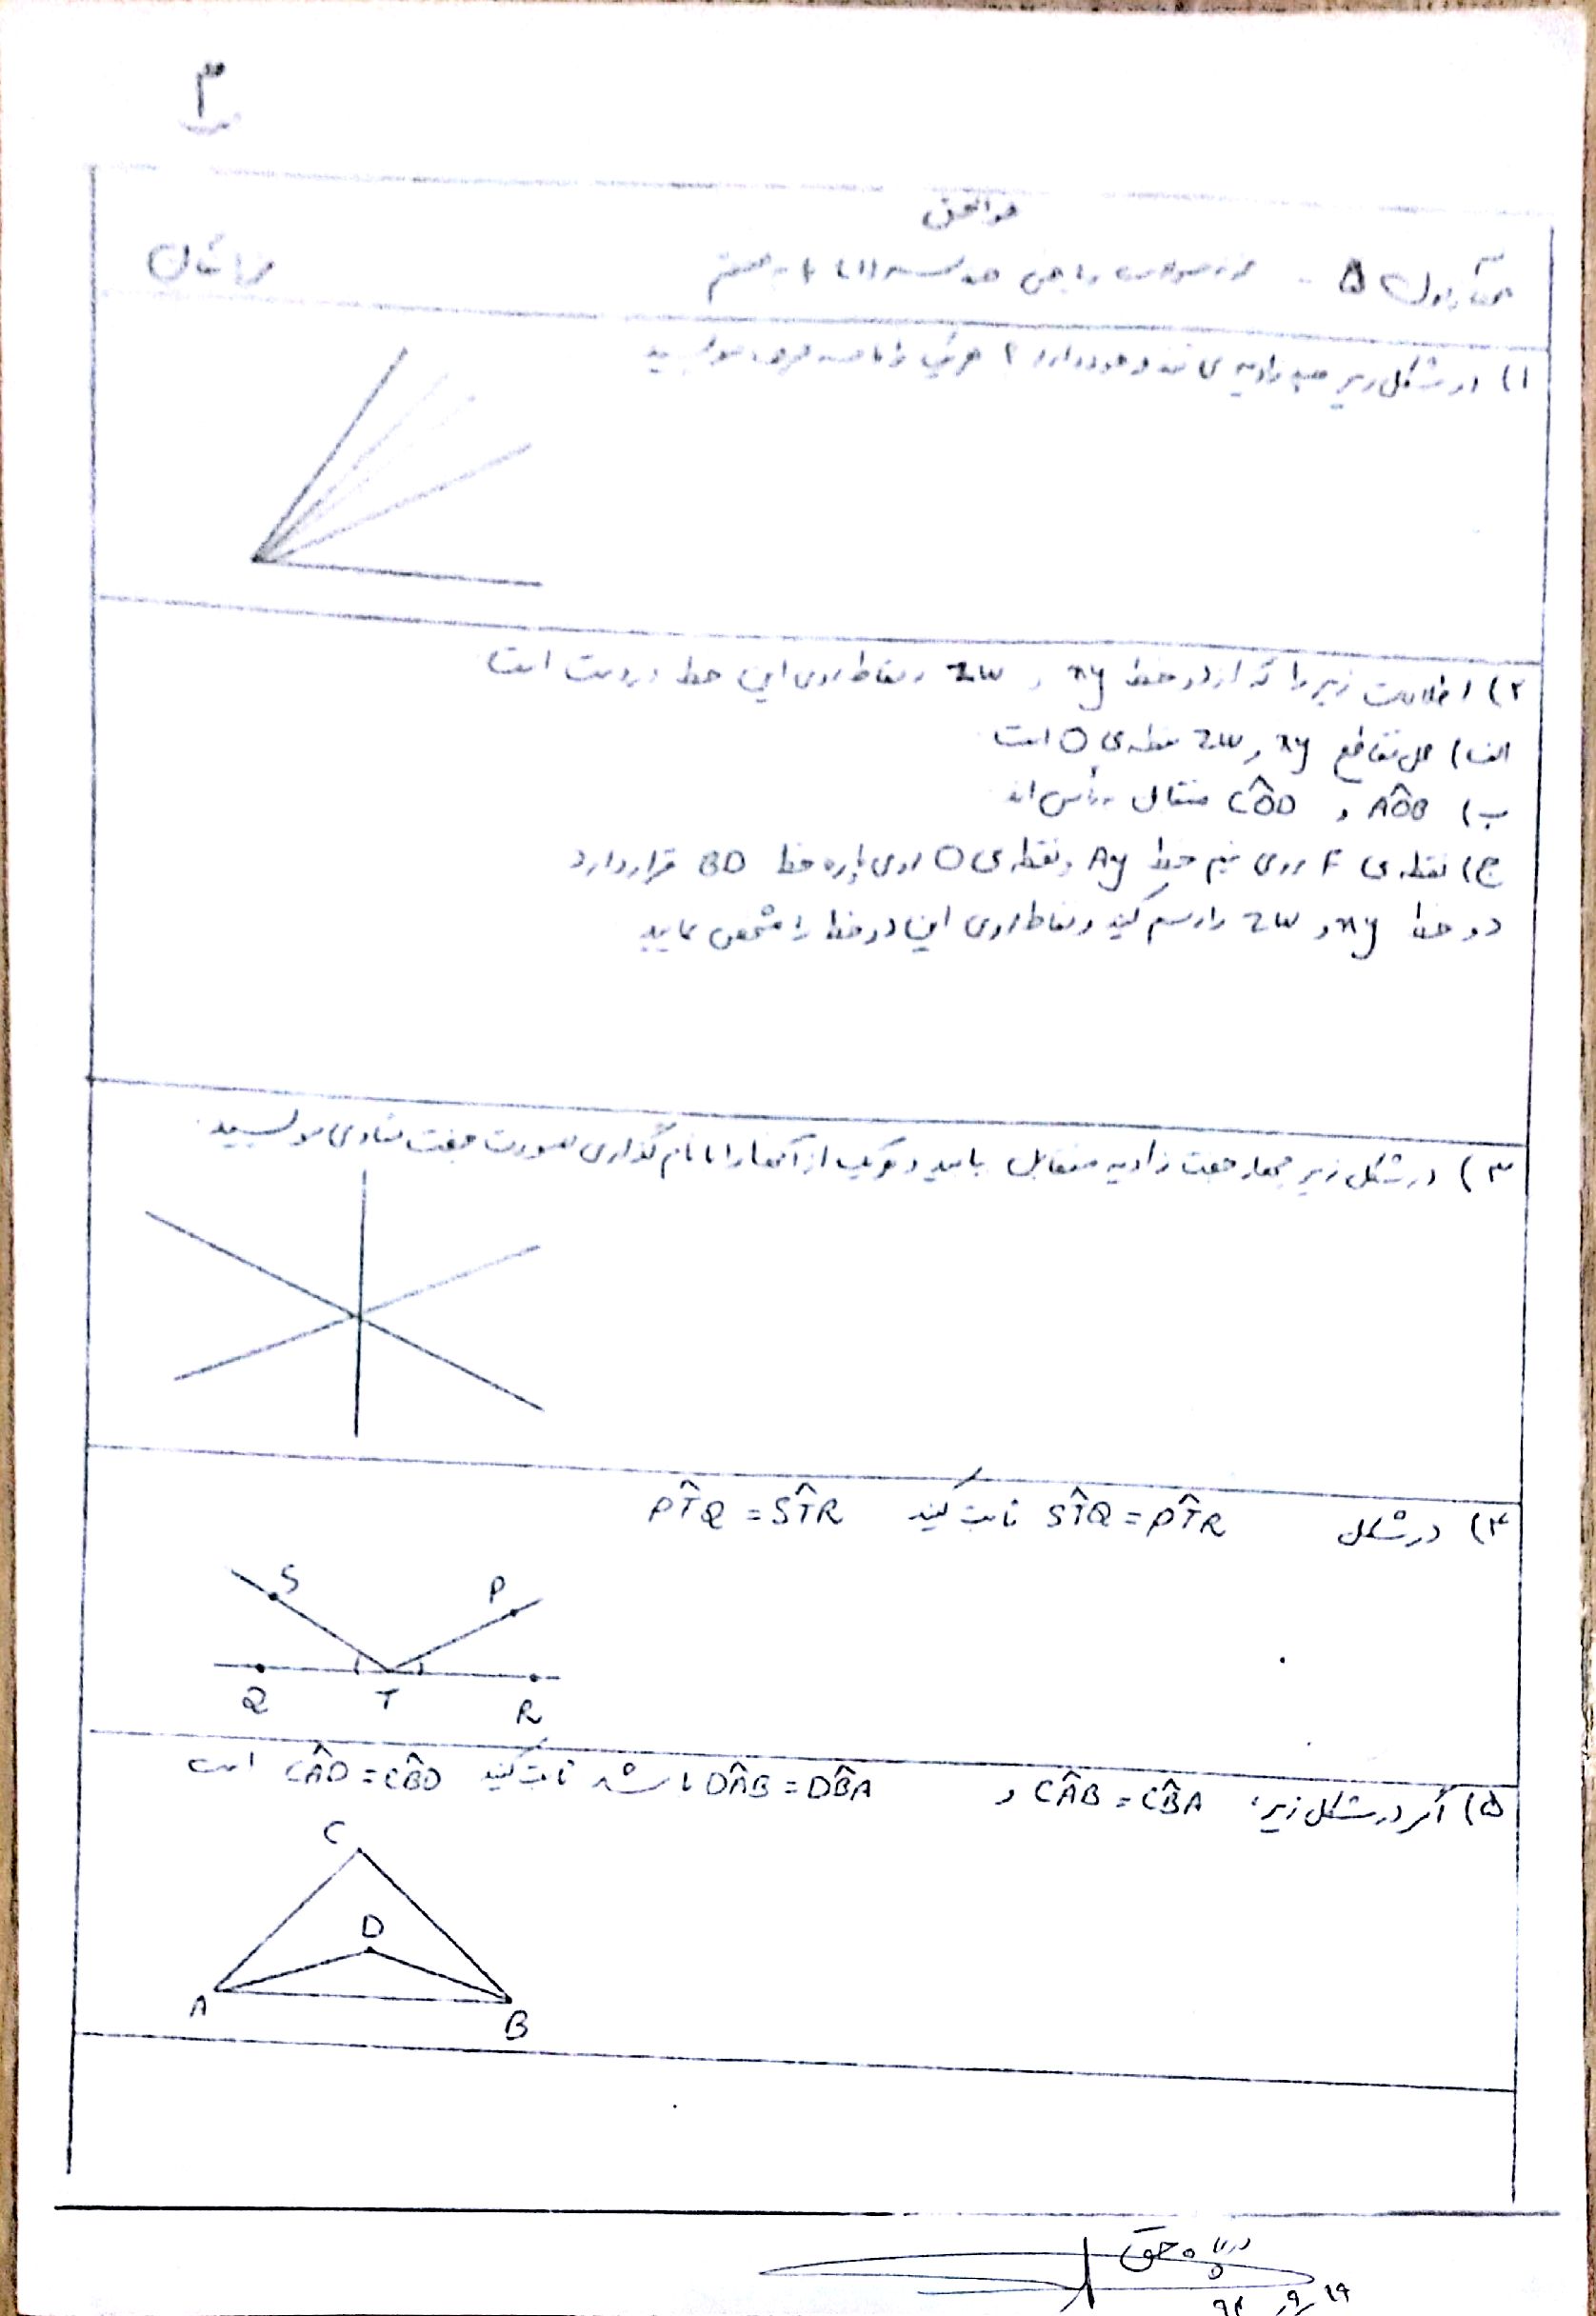 ۳
هوالحق
۵ - نمونه سوالات ریاضی هندسه
۱) در شکل زیر چند زاویه ی تند وجود دارد؟ هر یک را با سه حرف بنویسید
۲) اطلاعات زیر را که از دو خط xy و zw و نقاط روی این خط در دست است
الف) محل تقاطع xy و zw نقطه ی O است
ب) AÔB و CÔD متقابل به رأس اند
ج) نقطه ی F روی نیم خط Ay و نقطه ی O روی پاره خط BD قرار دارد
دو خط xy و zw را رسم کنید و نقاط روی این دو خط را مشخص نمایید
۳) در شکل زیر چهار جفت زاویه متقابل بیابید و هر یک از آنها را با نام گذاری بصورت جفت مساوی بنویسید
۴) در شکل ST̂Q = PT̂R ثابت کنید PT̂Q = ST̂R
S
P
Q
T
R
۵) اگر در شکل زیر، CÂB = CB̂A و DÂB = DB̂A باشد ثابت کنید CÂD = CB̂D است
C
D
A
B